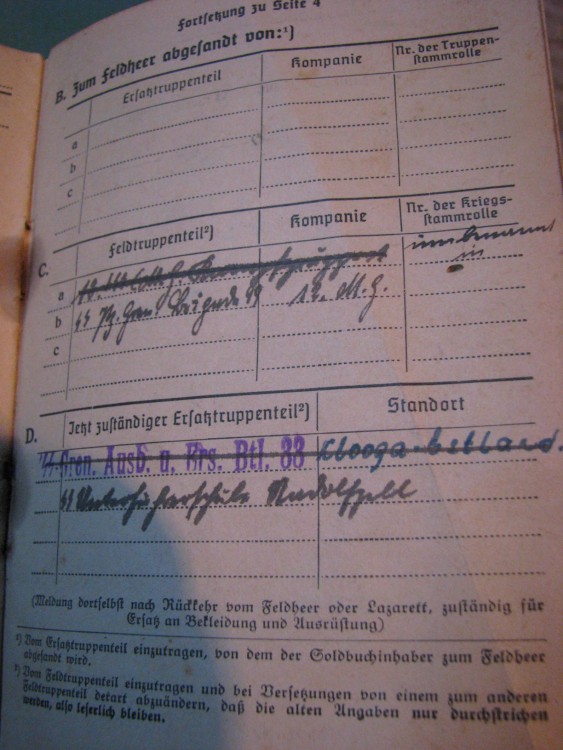 Fortsetzung zu Seite 4
B. Zum Feldheer abgesandt von:¹)
Ersatztruppenteil
Kompanie
Nr. der Truppen-
stammrolle
a
b
c
C.
Feldtruppenteil²)
Kompanie
Nr. der Kriegs-
stammrolle
a
umbenannt
in
b
Brigade 49
12. M.G.
c
D.
Jetzt zuständiger Ersatztruppenteil²)
Standort
Gren. Ausb. u. Ers. Btl. 33
Klooga
Unterführerschule Radolfzell
(Meldung dortselbst nach Rückkehr vom Feldheer oder Lazarett, zuständig für
Ersatz an Bekleidung und Ausrüstung)
¹) Vom Ersatztruppenteil einzutragen, von dem der Soldbuchinhaber zum Feldheer
abgesandt wird.
²) Vom Feldtruppenteil einzutragen und bei Versetzungen von einem zum anderen
Feldtruppenteil derart abzuändern, daß die alten Angaben nur durchstrichen
werden, also leserlich bleiben.